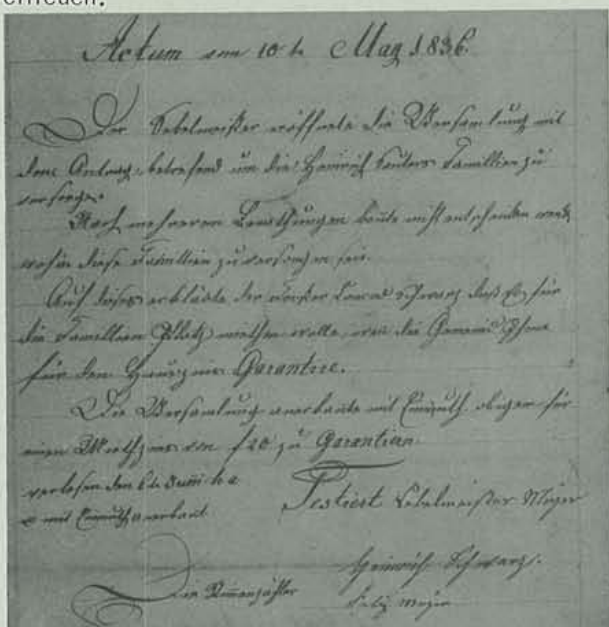 erfreuen.
Actum vom 10 t. May 1836.
Der Sekelmeister eröffnete die Versamlung mit
dem Antrag, betrefend um die Heinrich Suters Famillien zu
versorgen.
Nach mehreren Berathungen konte nicht entschieden werden
wohin diese Famillien zu versorgen sei.
Auf dieses erklärte der Conrad Schwarz daß Er für
die Famillien Platz miethen wolle, wen die Gemeind Ihme
für den Hauszins Garantire.
Die Versamlung anerkante mit Einmuth obigen für
einen Miethzins von f20 zu Garantieren.
verlesen den 6 t. Juni h a
mit Einmuth anerkant
Testiert Sekelmeister Meyer
Heinrich Schwarz.
Der Stimmenzähler
Felix Meyer